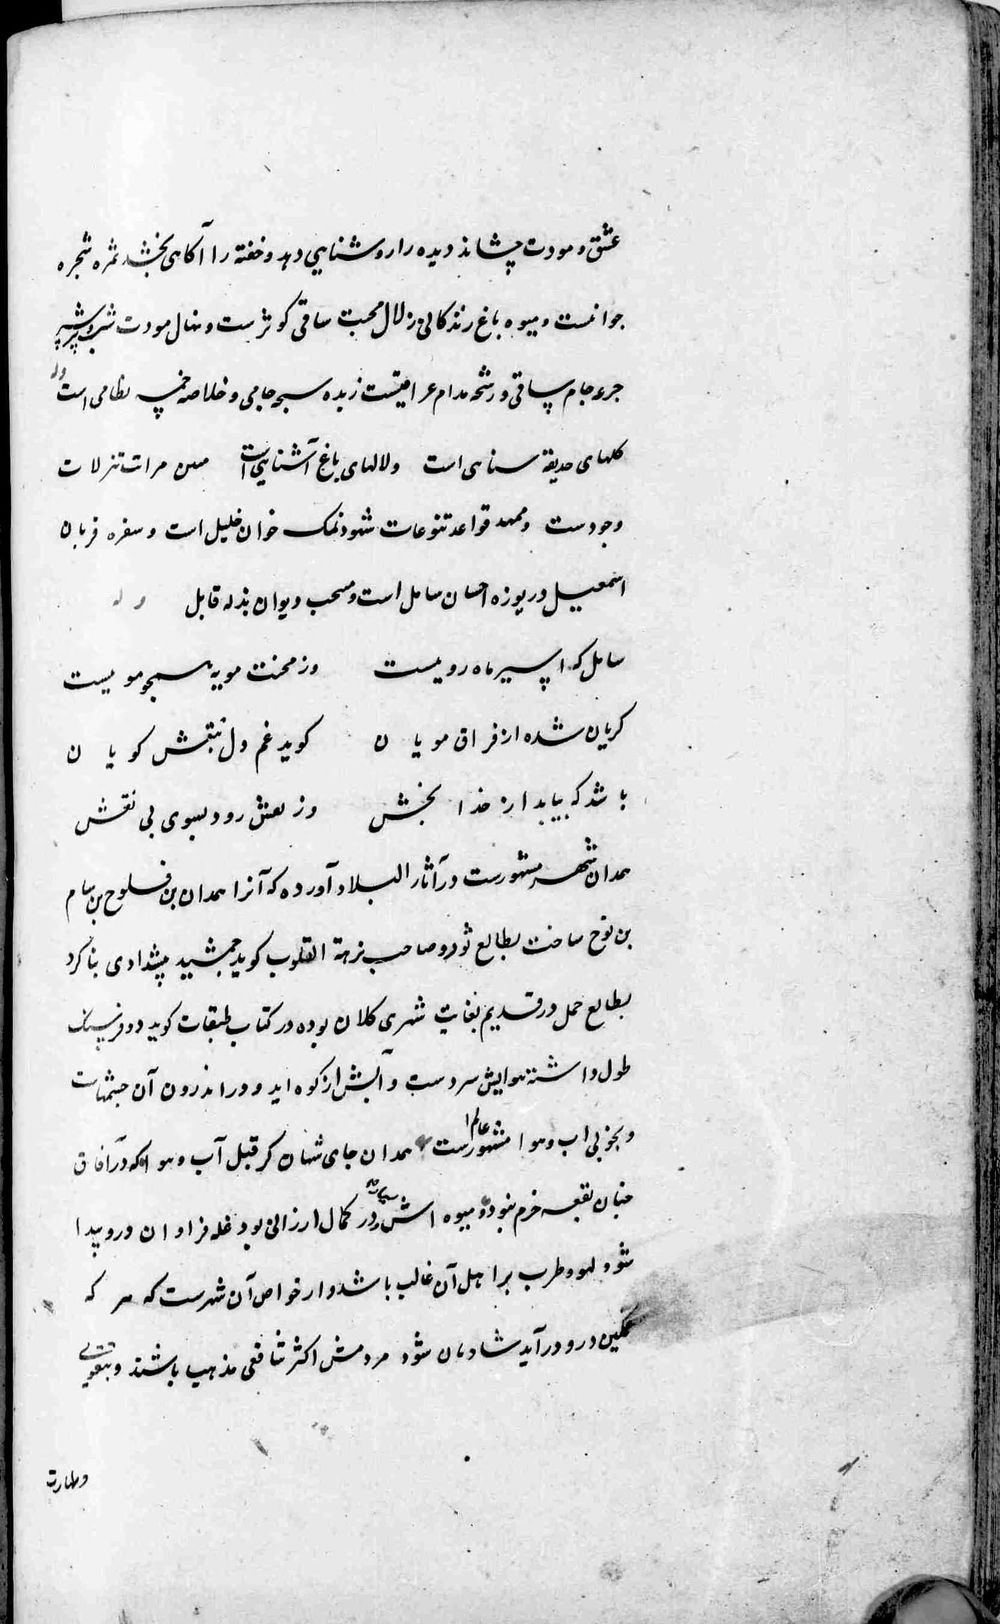 عشق و مودت چشاند دیده را روشنایی دهد و خفته را آکاهی بخشد ثمره شجره
جوانست و میوه باغ زندکانی زلال محبت ساقی کوثرست و نهال مودت شبیر و شبر
جرعه جام ساقی و رشحه مدام عراقیست زبده سبحه جامی و خلاصه خمسه نظامی است
کلهای حدیقه سنایی است ولالهای باغ آشنایی است مبین مراتب تنزلات
وجودست وممهد قواعد تنوعات شهود نمک خوان خلیل است و سفره قربان
اسمعیل دریوزه احسان سامل است و منتخب دیوان بذله قابل وله
سامل که اسیر ماه رویست وز محنت مویه همچو مویست
کریان شده از فراق مویان کوید غم دل کویان
باشد که بیابد از خدا بخش وز نقش رود بسوی بی نقش
همدان شهر مشهورست در آثار البلاد آورده که آنرا همدان بن فلوح بن سام
بن نوح ساخت بطالع ثور و صاحب نزهة القلوب کوید جمشید پیشدادی بنا کرد
بطالع حمل در قدیم بغایت شهری کلان بوده در کتاب طبقات کوید دو فرسنک
طول داشته هوایش سردست و آبش از کوه اید و در اندرون آن چشمهاست
و بخوبی اب و هوا مشهور عالم است همدان جای شهان کز قبل آب و هوا که در آفاق
چنان بقعه خرم نبود و میوه اش در کمال ارزانی بود غله فراوان درو پیدا
شود لهو و طرب بر اهل آن غالب باشد و از خواص آن شهرست که هر که
غمکین درو درآید شادمان شود مردمش اکثر شافعی مذهب باشند و بتقوی
وطهارت